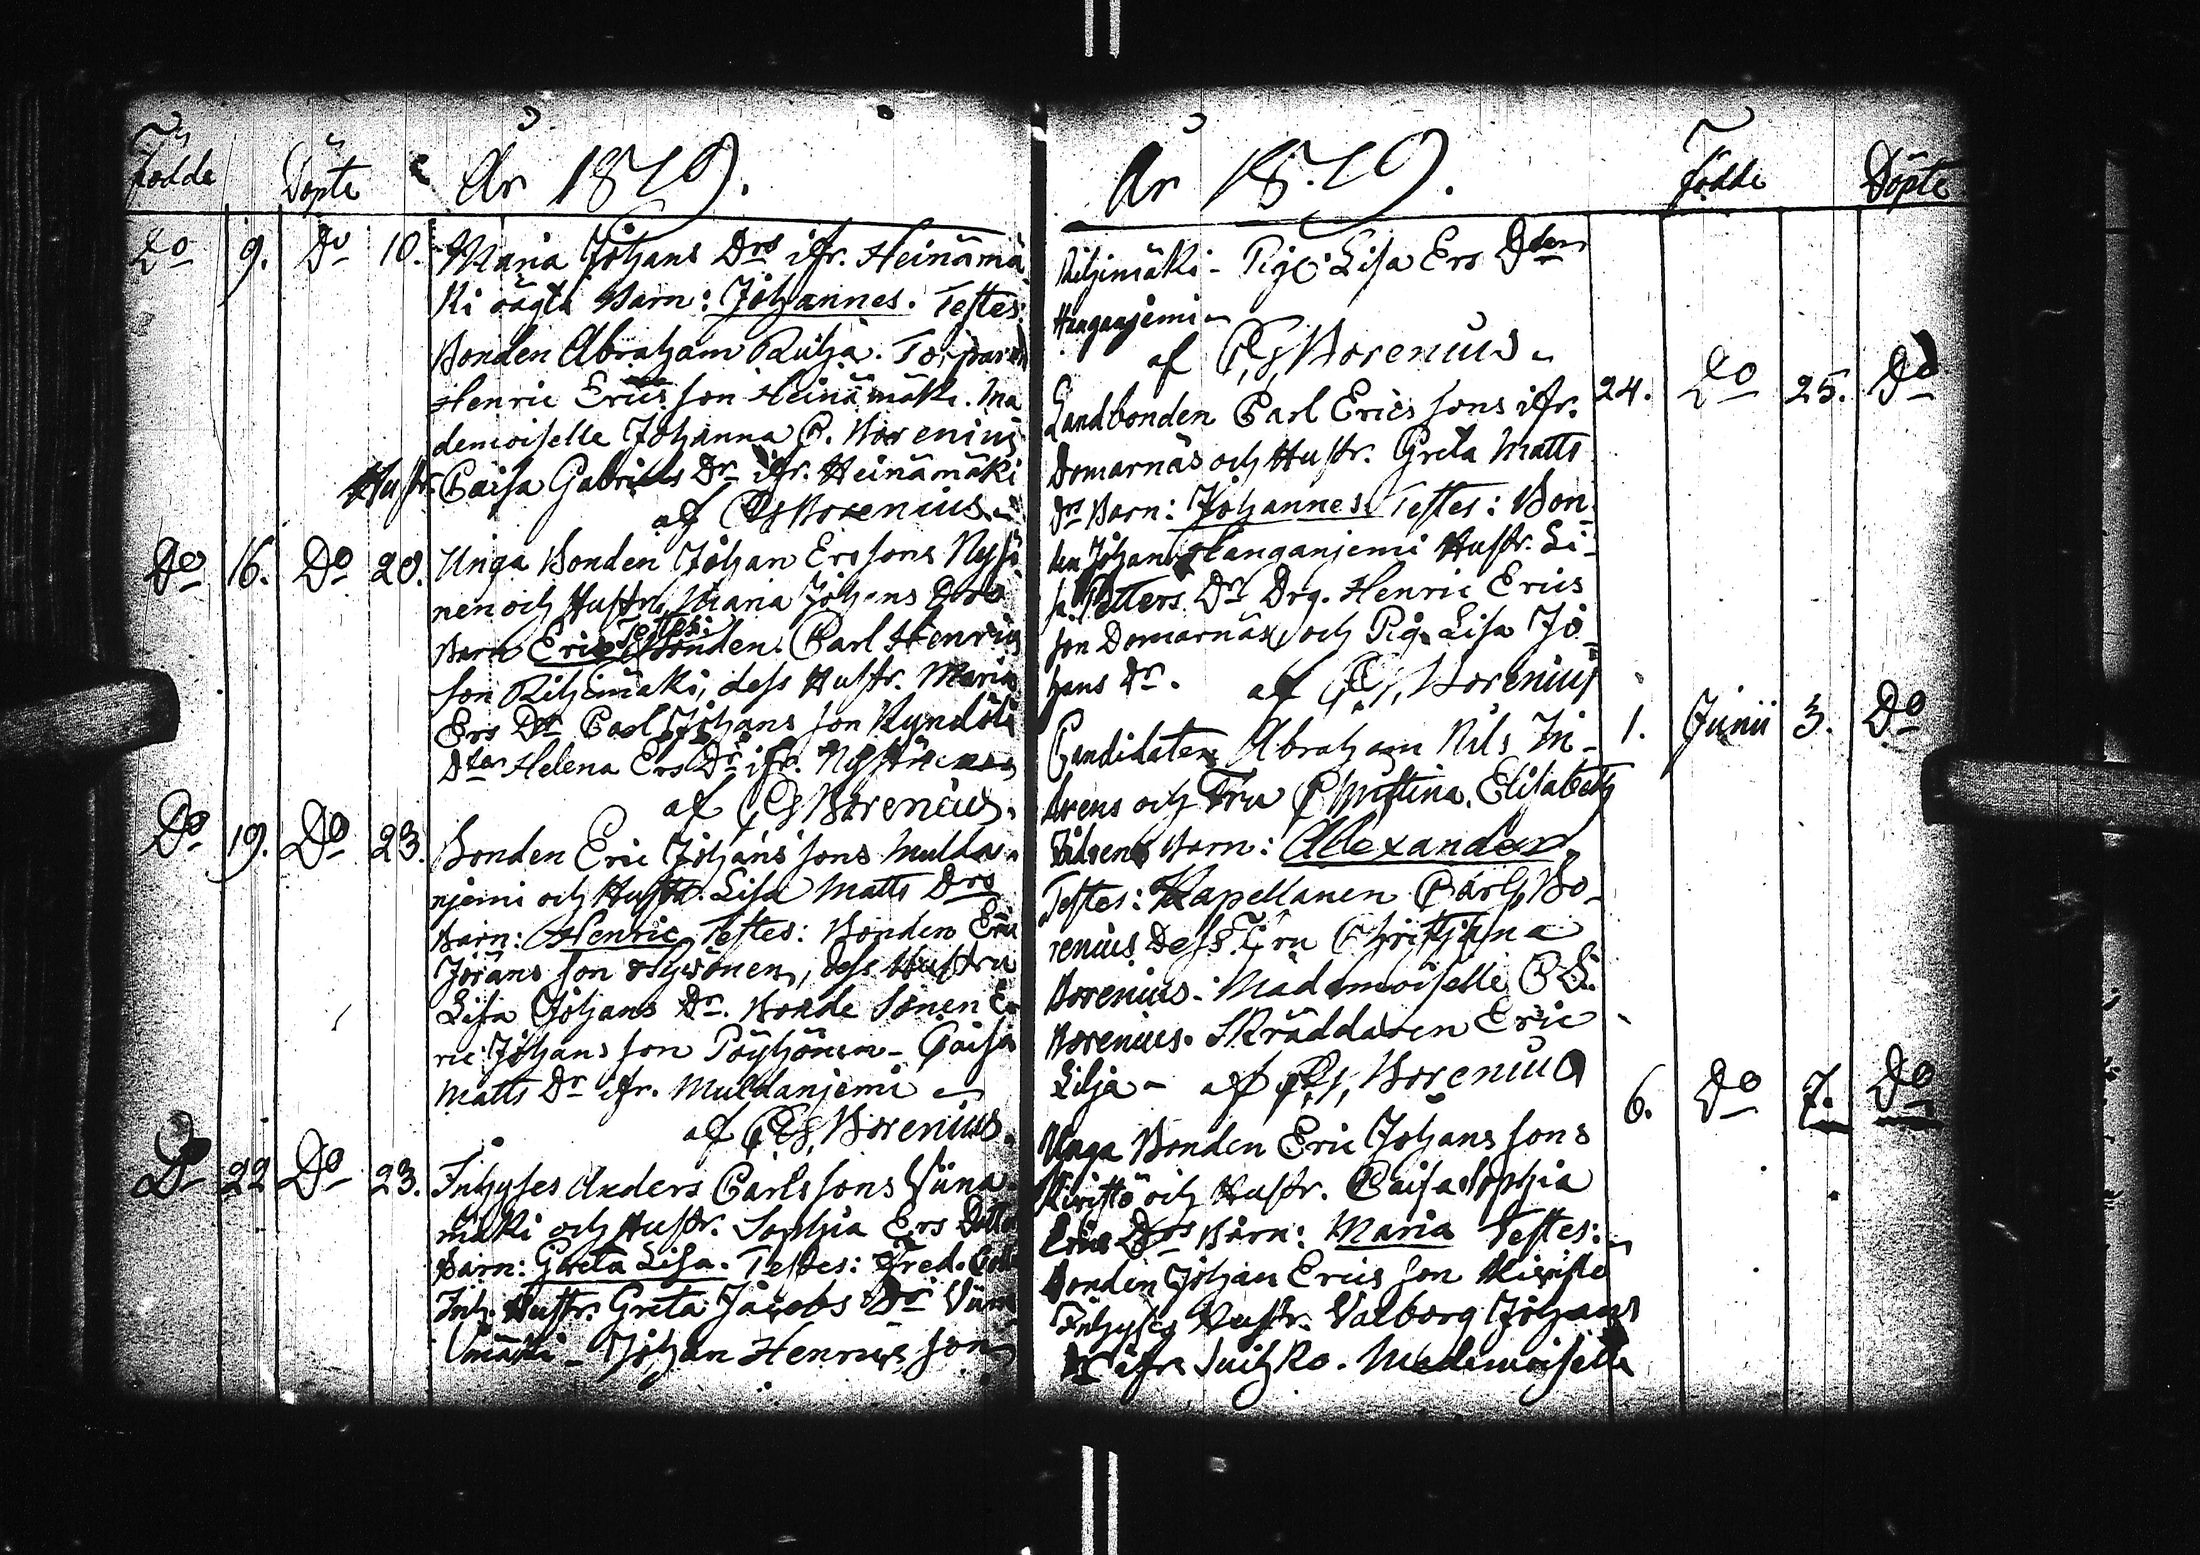 Födde Döpte År 1819.
Do 9. Do 10. Maria Johans Drs ifr. Heinämä
ki oägta Barn: Johannes. Testes:
Bonden Abraham Ruihja. Torparen
Henric Erics son Heinämäki. Ma
demoiselle Johanna C. Borenius
Hustr. Caisa Gabriels Dr ifr. Heinämäki
af C. G. Borenius.
Do 16. Do 20. Unga Bonden Johan Ers sons Nyhi
nen och Hustru Maria Johans Drs
Barn Eric Testes: Bonden Carl Henrics
son Riihimäki, dess Hustr. Maria
Ers Dr Carl Johans son Kyndöli
Dter Helena Ers Dr ifr.
af C. G. Borenius.
Do 19. Do 23. Bonden Eric Johans sons Mulda-
njemi och Hustr. Lisa Matts Drs
Barn: Henric Testes: Bonden Eric
Jörans son Hyvönen, dess Hustru
Lisa Johans Dr. Bonde Sonen E-
ric Johans son Pöyhönen - Caisa
Matts Dr ifr. Muldanjemi
af C. G. Borenius.
Do 22 Do 23. Inhyses Anders Carls sons Viina-
mäki och Hustr. Sophia Ers Dotter
Barn: Greta Lisa. Testes: Fred.
Inh. Hustr. Greta Jacobs Dr Viina
mäki - Johan Henrics son
År 1819. Födde Döpte
Riihimäki - Pig. Lisa Ers Dter
Hanganjemi
af C. G. Borenius
Landbonden Carl Erics sons ifr. 24. Do 25. Do
Domarnäs och Hustr. Greta Matts
Drs Barn: Johannes. Testes: Bon-
den Johan Hanganjemi Hustr. Li-
sa Petters Dr Drg. Henric Erics
son Domarnäs och Pig. Lisa Jo-
hans Dr. af C. G. Borenius
Candidaten Abraham Nils In- 1. Junii 3. Do
drens och Fru Christina Elisabeth
Barn: Alexander.
Testes: Kapellanen Carl G. Bo-
renius Dess Fru Christina
Borenius. Mademoiselle C. L.
Borenius. Skräddaren Eric
Lilja - af C. G. Borenius
Unga Bonden Eric Johans sons 6. Do 7. Do
Kivistö och Hustr. Caisa Sophia
Erics Drs Barn: Maria Testes:
Bonden Johan Erics son Kivistö
Inhyses Hustr. Valborg Johans
Dr ifr. Suihko. Mademoiselle